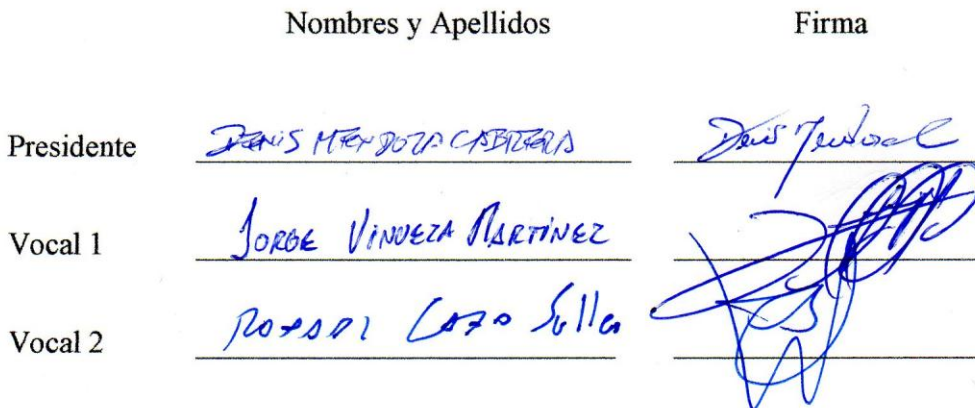 Nombres y Apellidos Firma
Presidente DENIS MENDOZA CABRERA Denis Mendoza
Vocal 1 JORGE VINUEZA MARTINEZ
Vocal 2